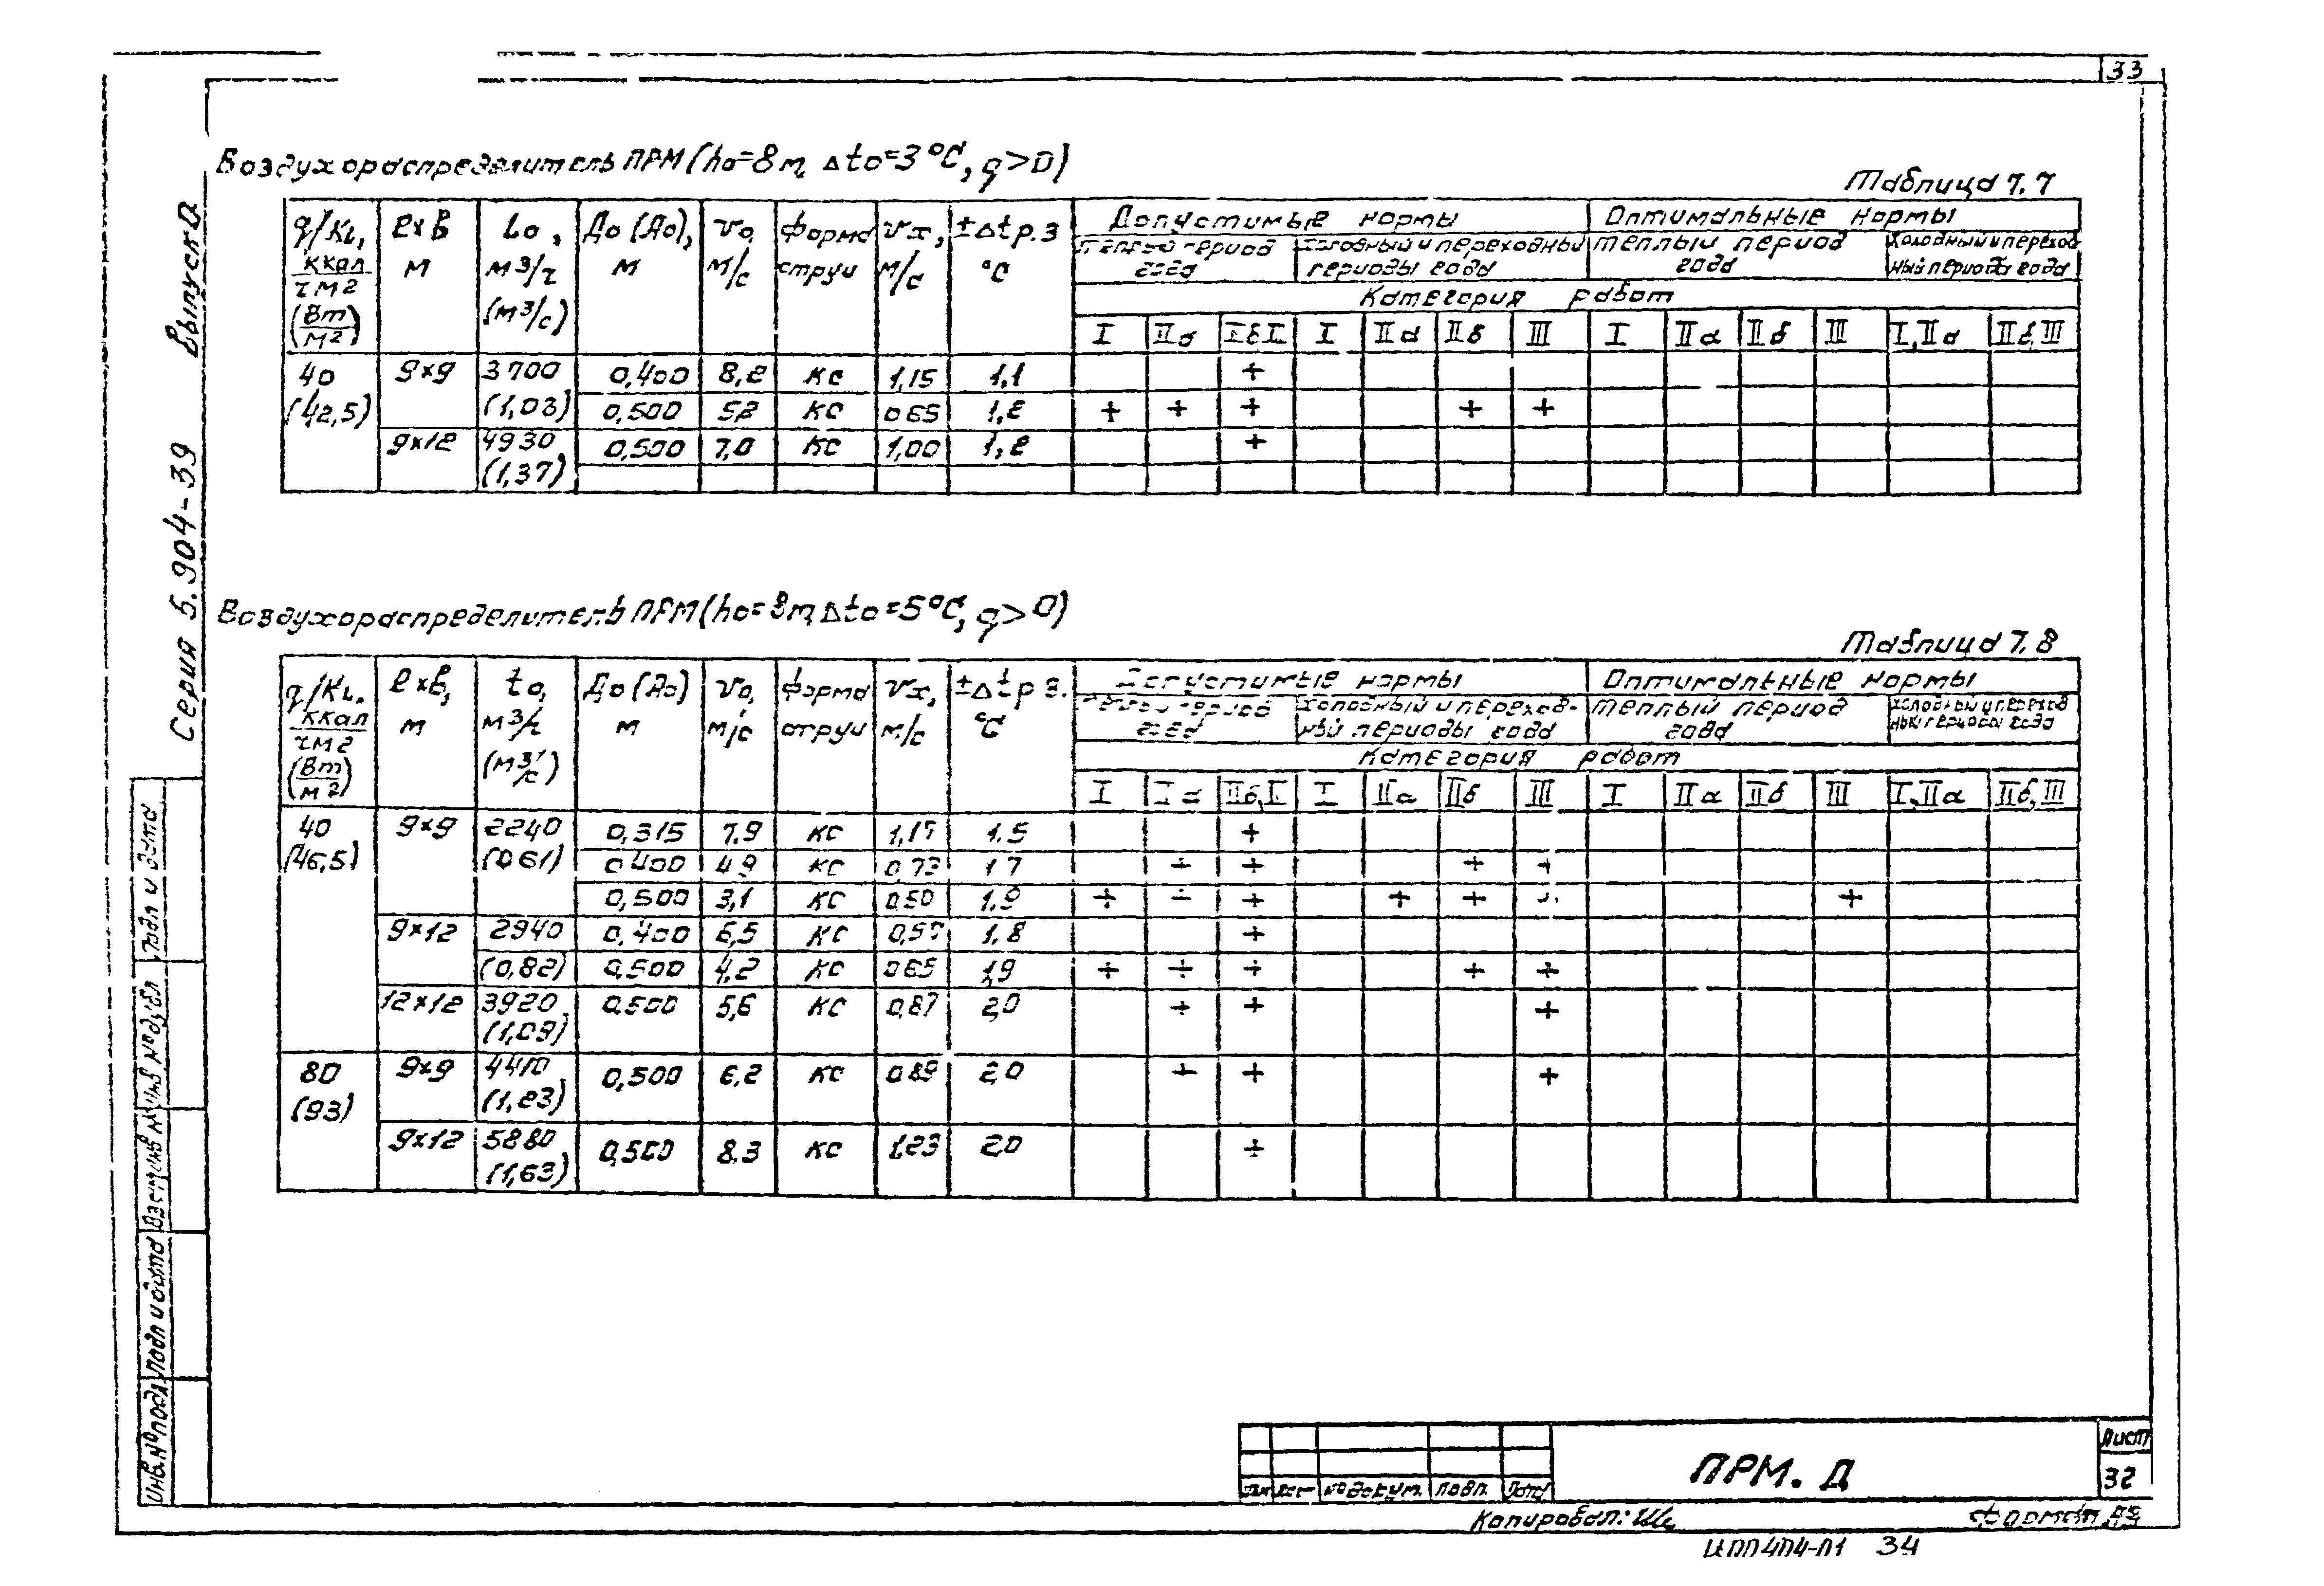 33
Воздухораспределитель ПРМ (ho=8м, Δto=3°С, q>0)
Таблица 7.7
q/KL, ккал/чм2 (Вт/м2) | ℓ×в м | Lo, м3/ч (м3/с) | До (До), м | vo, м/с | форма струи | vx, м/с | ±Δtр.з °С | Допустимые нормы | Оптимальные нормы
теплый период года | холодный и переходный периоды года | теплый период года | холодный и переходный периоды года
Категория работ
I | IIа | IIб,I | I | IIа | IIб | III | I | IIа | IIб | III | I,IIа | IIб,III
40 | 9×9 | 3700 | 0,400 | 8,2 | КС | 1,15 | 1,1 | +
(42,5) | (1,03) | 0,500 | 5,2 | КС | 0,65 | 1,2 | + | + | + | + | +
9×12 | 4930 | 0,500 | 7,0 | КС | 1,00 | 1,2 | +
(1,37)
Воздухораспределитель ПРМ (ho=8м, Δto=5°С, q>0)
Таблица 7.8
q/KL, ккал/чм2 (Вт/м2) | ℓ×в, м | to, м3/ч (м3/с) | До (До) м | vo, м/с | форма струи | vx, м/с | ±Δtр.з. °С | Допустимые нормы | Оптимальные нормы
теплый период года | холодный и переход-ный периоды года | теплый период года | холодный и переходный периоды года
Категория работ
I | IIа | IIб,I | I | IIа | IIб | III | I | IIа | IIб | III | I,IIа | IIб,III
40 | 9×9 | 2240 | 0,315 | 7,9 | КС | 1,17 | 1,5 | +
(46,5) | (0,61) | 0,400 | 4,9 | КС | 0,73 | 1,7 | + | + | + | +
0,500 | 3,1 | КС | 0,50 | 1,9 | + | + | + | + | + | + | +
9×12 | 2940 | 0,400 | 6,5 | КС | 0,97 | 1,8 | +
(0,82) | 0,500 | 4,2 | КС | 0,65 | 1,9 | + | + | + | + | +
12×12 | 3920 | 0,500 | 5,6 | КС | 0,87 | 2,0 | + | + | +
(1,09)
80 | 9×9 | 4410 | 0,500 | 6,2 | КС | 0,89 | 2,0 | + | + | +
(93) | (1,23)
9×12 | 5880 | 0,500 | 8,3 | КС | 1,23 | 2,0 | +
(1,63)
Серия 5.904-39 Выпуск 0
Подп и дата
Инв № дубл
Взам инв №
Подп и дата
Инв. № подл
№ докум. | Подп. | Дата
ПРМ. Д
Лист
32
Копировал:
Формат
34